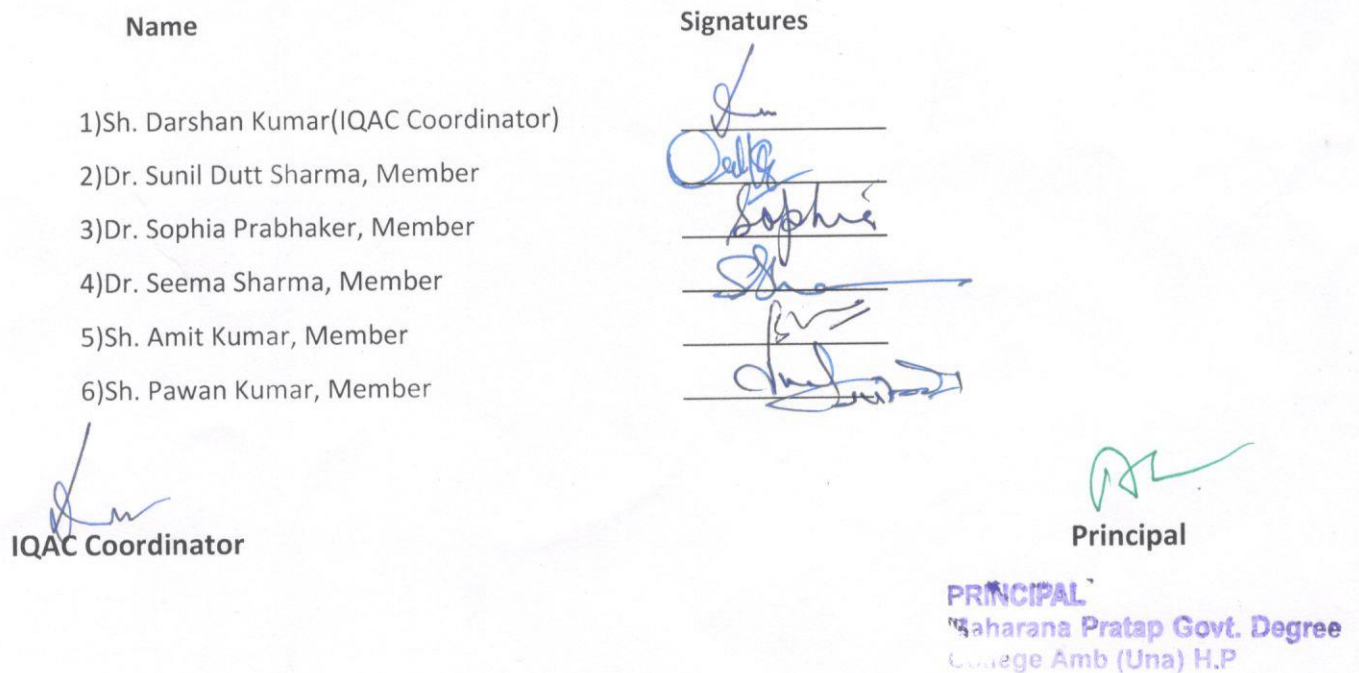 Name Signatures
1)Sh. Darshan Kumar(IQAC Coordinator)
2)Dr. Sunil Dutt Sharma, Member
3)Dr. Sophia Prabhaker, Member Sophia
4)Dr. Seema Sharma, Member
5)Sh. Amit Kumar, Member
6)Sh. Pawan Kumar, Member
IQAC Coordinator Principal
PRINCIPAL
Maharana Pratap Govt. Degree
College Amb (Una) H.P